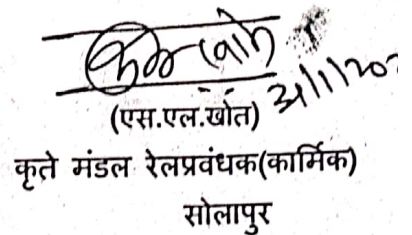 (एस.एल.खोत)
कृते मंडल रेलप्रवंधक(कार्मिक)
सोलापुर